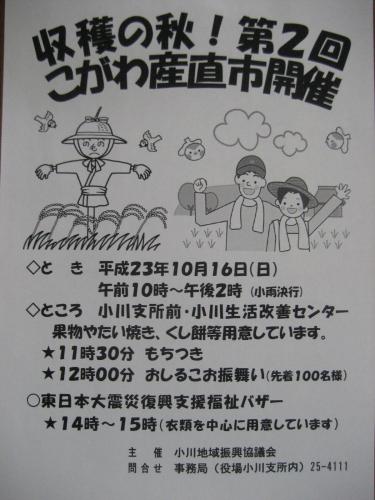 収穫の秋!第2回
こがわ産直市開催
◇と き 平成23年10月16日(日)
午前10時~午後2時(小雨決行)
◇ところ 小川支所前・小川生活改善センター
果物やたい焼き、くし餅等用意しています。
★11時30分 もちつき
★12時00分 おしるこお振舞い(先着100名様)
○東日本大震災復興支援福祉バザー
★14時~15時(衣類を中心に用意しています)
主 催 小川地域振興協議会
問合せ 事務局(役場小川支所内)25-4111